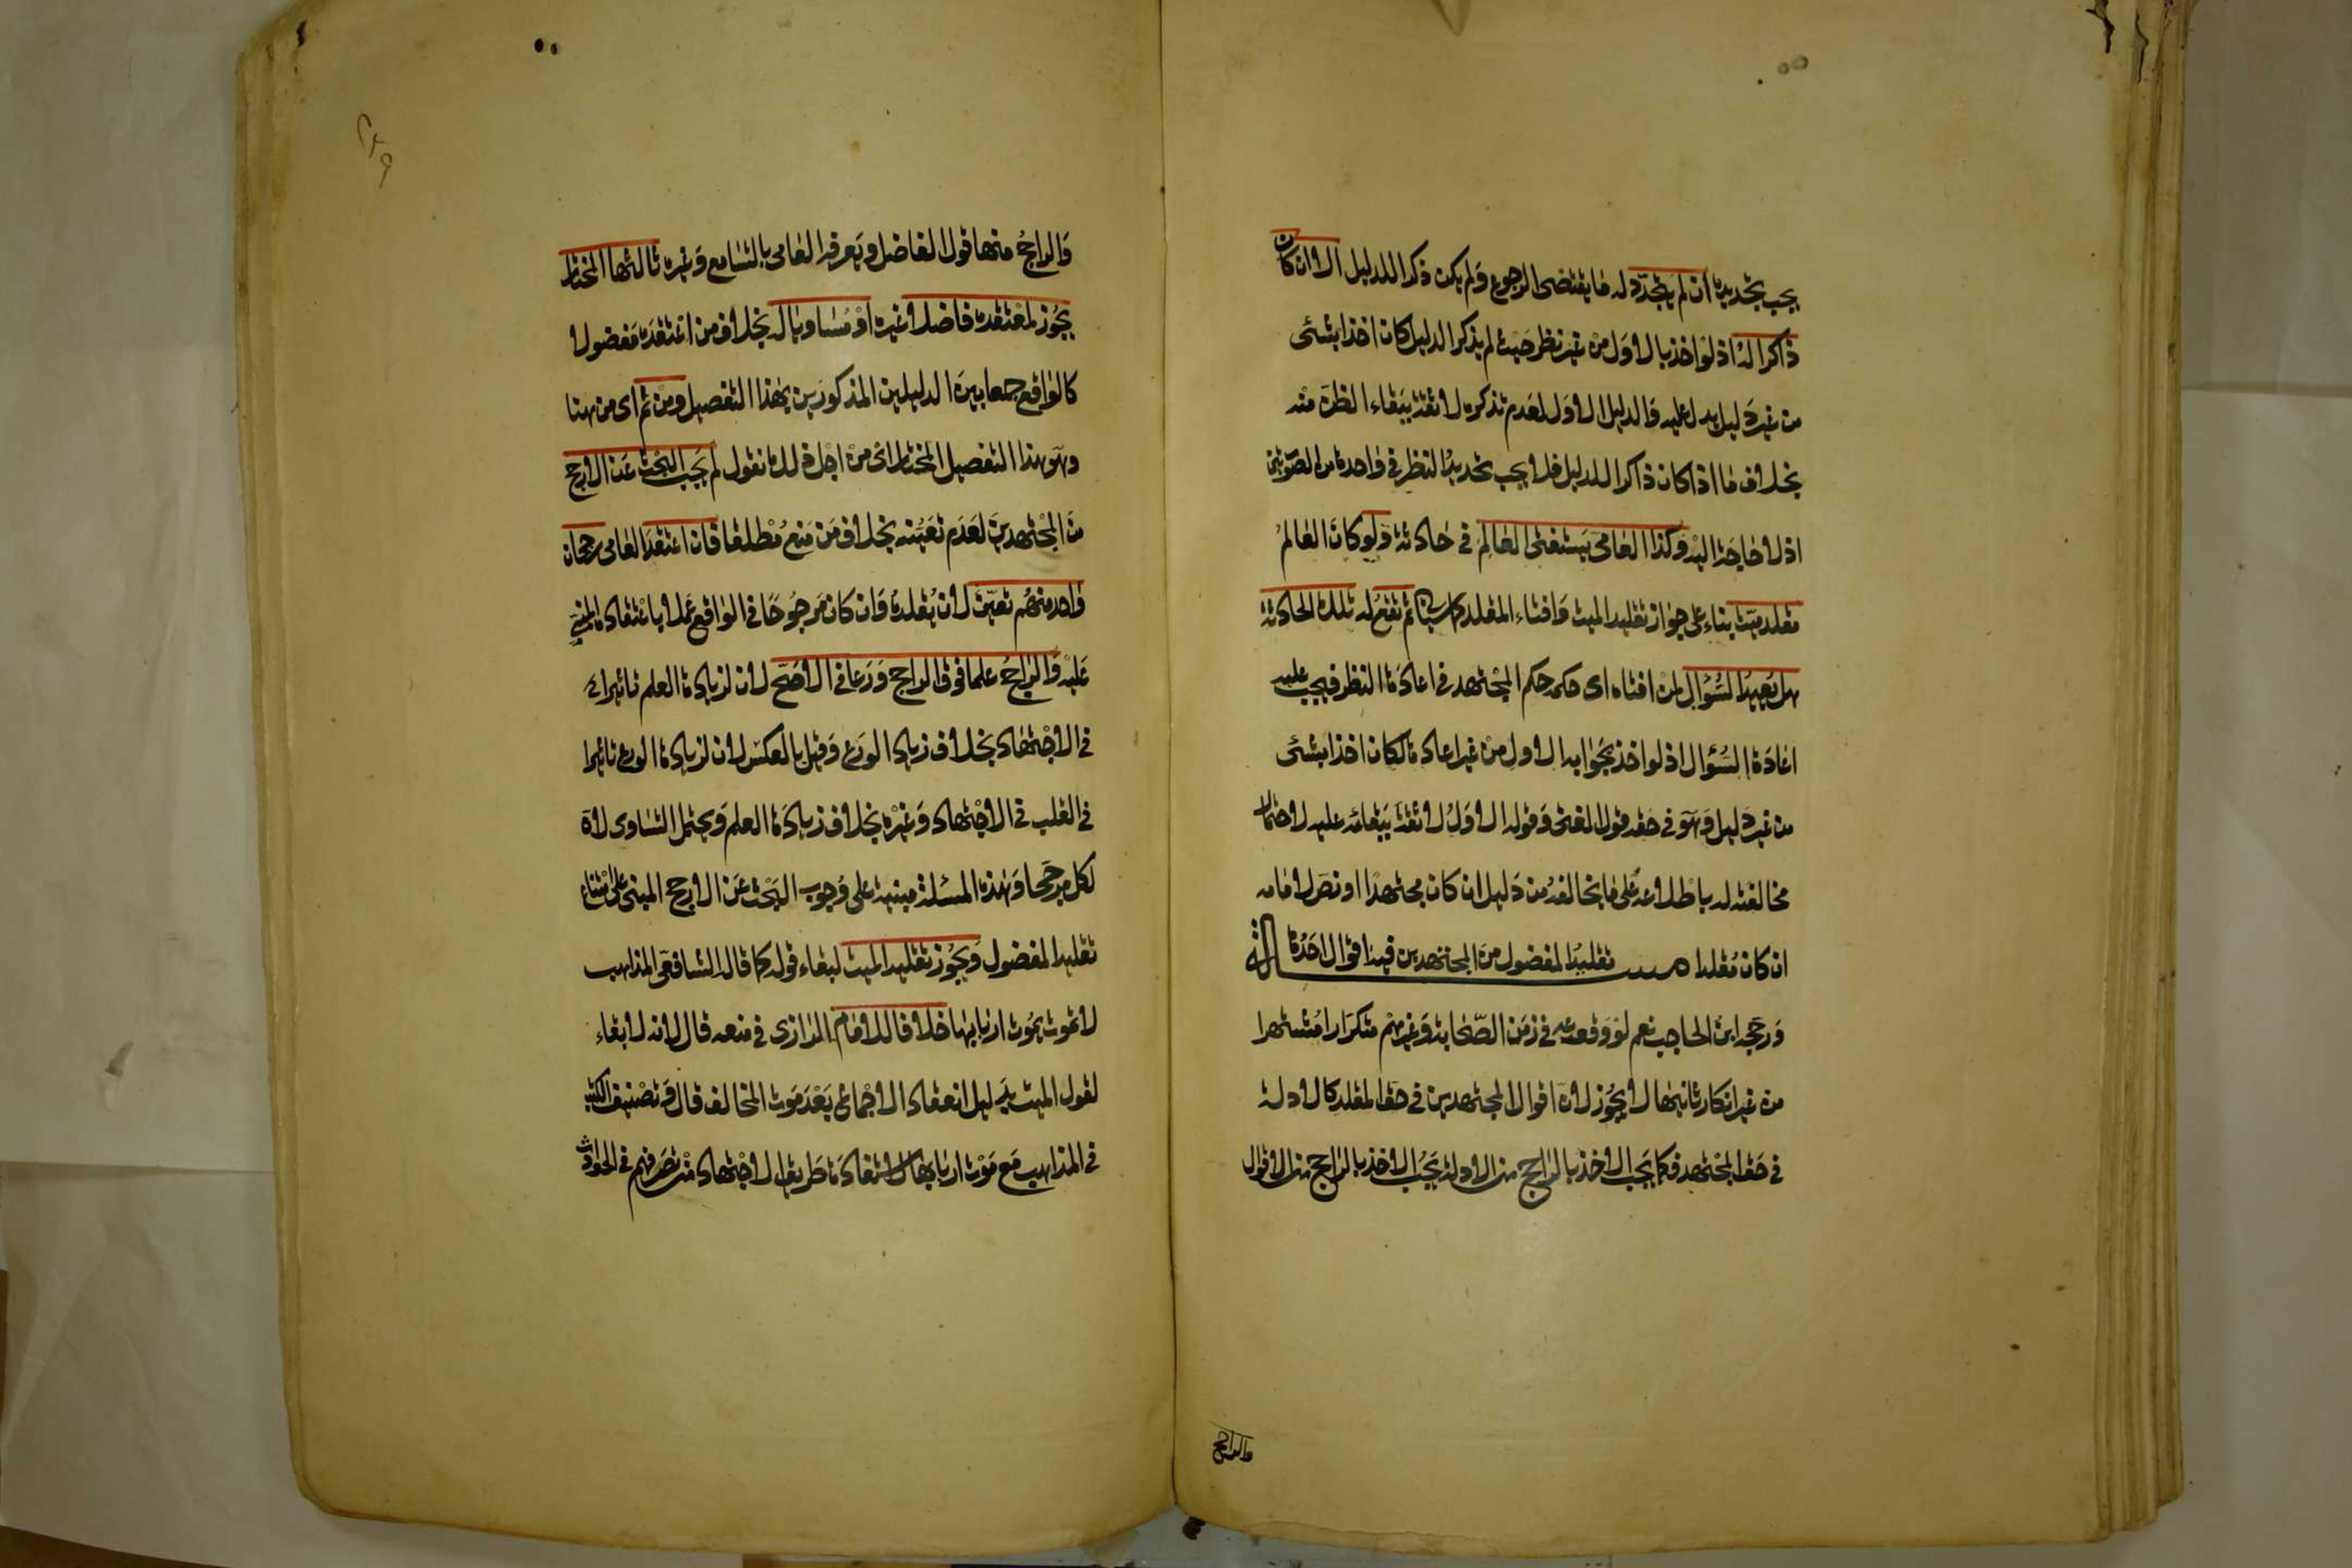 يجب تجديده ان لم يتجدد له ما يقتضى الرجوع ولم يكن ذكرا للدليل الاول ان كان
ذاكرا له اذ لو اخذ بالاول من غير نظر حيث لم يذكر الدليل كان اخذا بشئ
من غير دليل يدل عليه والدليل الاول لعدم تذكره لا ثقة ببقاء الظن منه
بخلاف ما اذا كان ذاكرا للدليل فلا يجب تجديد النظر في واحدة من الصورتين
اذ لا حاجة اليه وكذا العامى يستفتى العالم في حادثة ولو كان العالم
مقلد ميت بناء على جواز تقليد الميت وافتاء المقلد كما سياتى ثم تقع له تلك الحادثة
هل يعيد السؤال لمن افتاه اى حكمه حكم المجتهد في اعادة النظر فيجب عليه
اعادة السؤال اذ لو اخذ بجوابه الاول من غير اعادة لكان اخذا بشئ
من غير دليل وهو في حقه قول المفتى وقوله الاول لا ثقة ببقائه عليه لاحتمال
مخالفته له باطلاعه على ما يخالفه من دليل ان كان مجتهدا او نص لامامه
ان كان مقلدا مسئلة تقليد المفضول من المجتهدين فيه اقوال احدها
ورجحه ابن الحاجب نعم لوقوعه في زمن الصحابة وغيرهم متكررا مشتهرا
من غير انكار ثانيها لا يجوز لان اقوال المجتهدين في حق المقلد كالادلة
في حق المجتهد فكما يجب الاخذ بالراجح من الادلة يجب الاخذ بالراجح من الاقوال
والراجح
٢٤٩
والراجح منها قول الفاضل ويعرفه العامى بالتسامع وغيره ثالثها المختار
يجوز لمعتقده فاضلا غيره او مساويا له بخلاف من اعتقده مفضولا
كالواقع جمعا بين الدليلين المذكورين بهذا التفصيل ومن ثم اى من هنا
وهو هذا التفصيل المختار اى من اجل ذلك نقول لم يجب البحث عن الارجح
من المجتهدين لعدم تعينه بخلاف من منع مطلقا فان اعتقد العامى رجحان
واحد منهم تعين لان يقلده وان كان مرجوحا في الواقع عملا باعتقاده المبنى
عليه والراجح علما فوق الراجح ورعا في الاصح لان لزيادة العلم تاثيرا
في الاجتهاد بخلاف زيادة الورع وقيل بالعكس لان لزيادة الورع تاثيرا
في القلب في الاجتهاد وغيره بخلاف زيادة العلم ويحتمل التساوى لان
لكل مرجحا وهذه المسئلة مبنية على وجوب البحث عن الارجح المبنى على امتناع
تقليد المفضول ويجوز تقليد الميت لبقاء قوله كما قال الشافعى المذاهب
لا تموت بموت اربابها خلافا للامام الرازى في منعه قال لانه لا بقاء
لقول الميت بدليل انعقاد الاجماع بعد موت المخالف قال وتصنيف الكتب
في المذاهب مع موت اربابها لاستفادة طريق الاجتهاد من تصرفهم في الحوادث